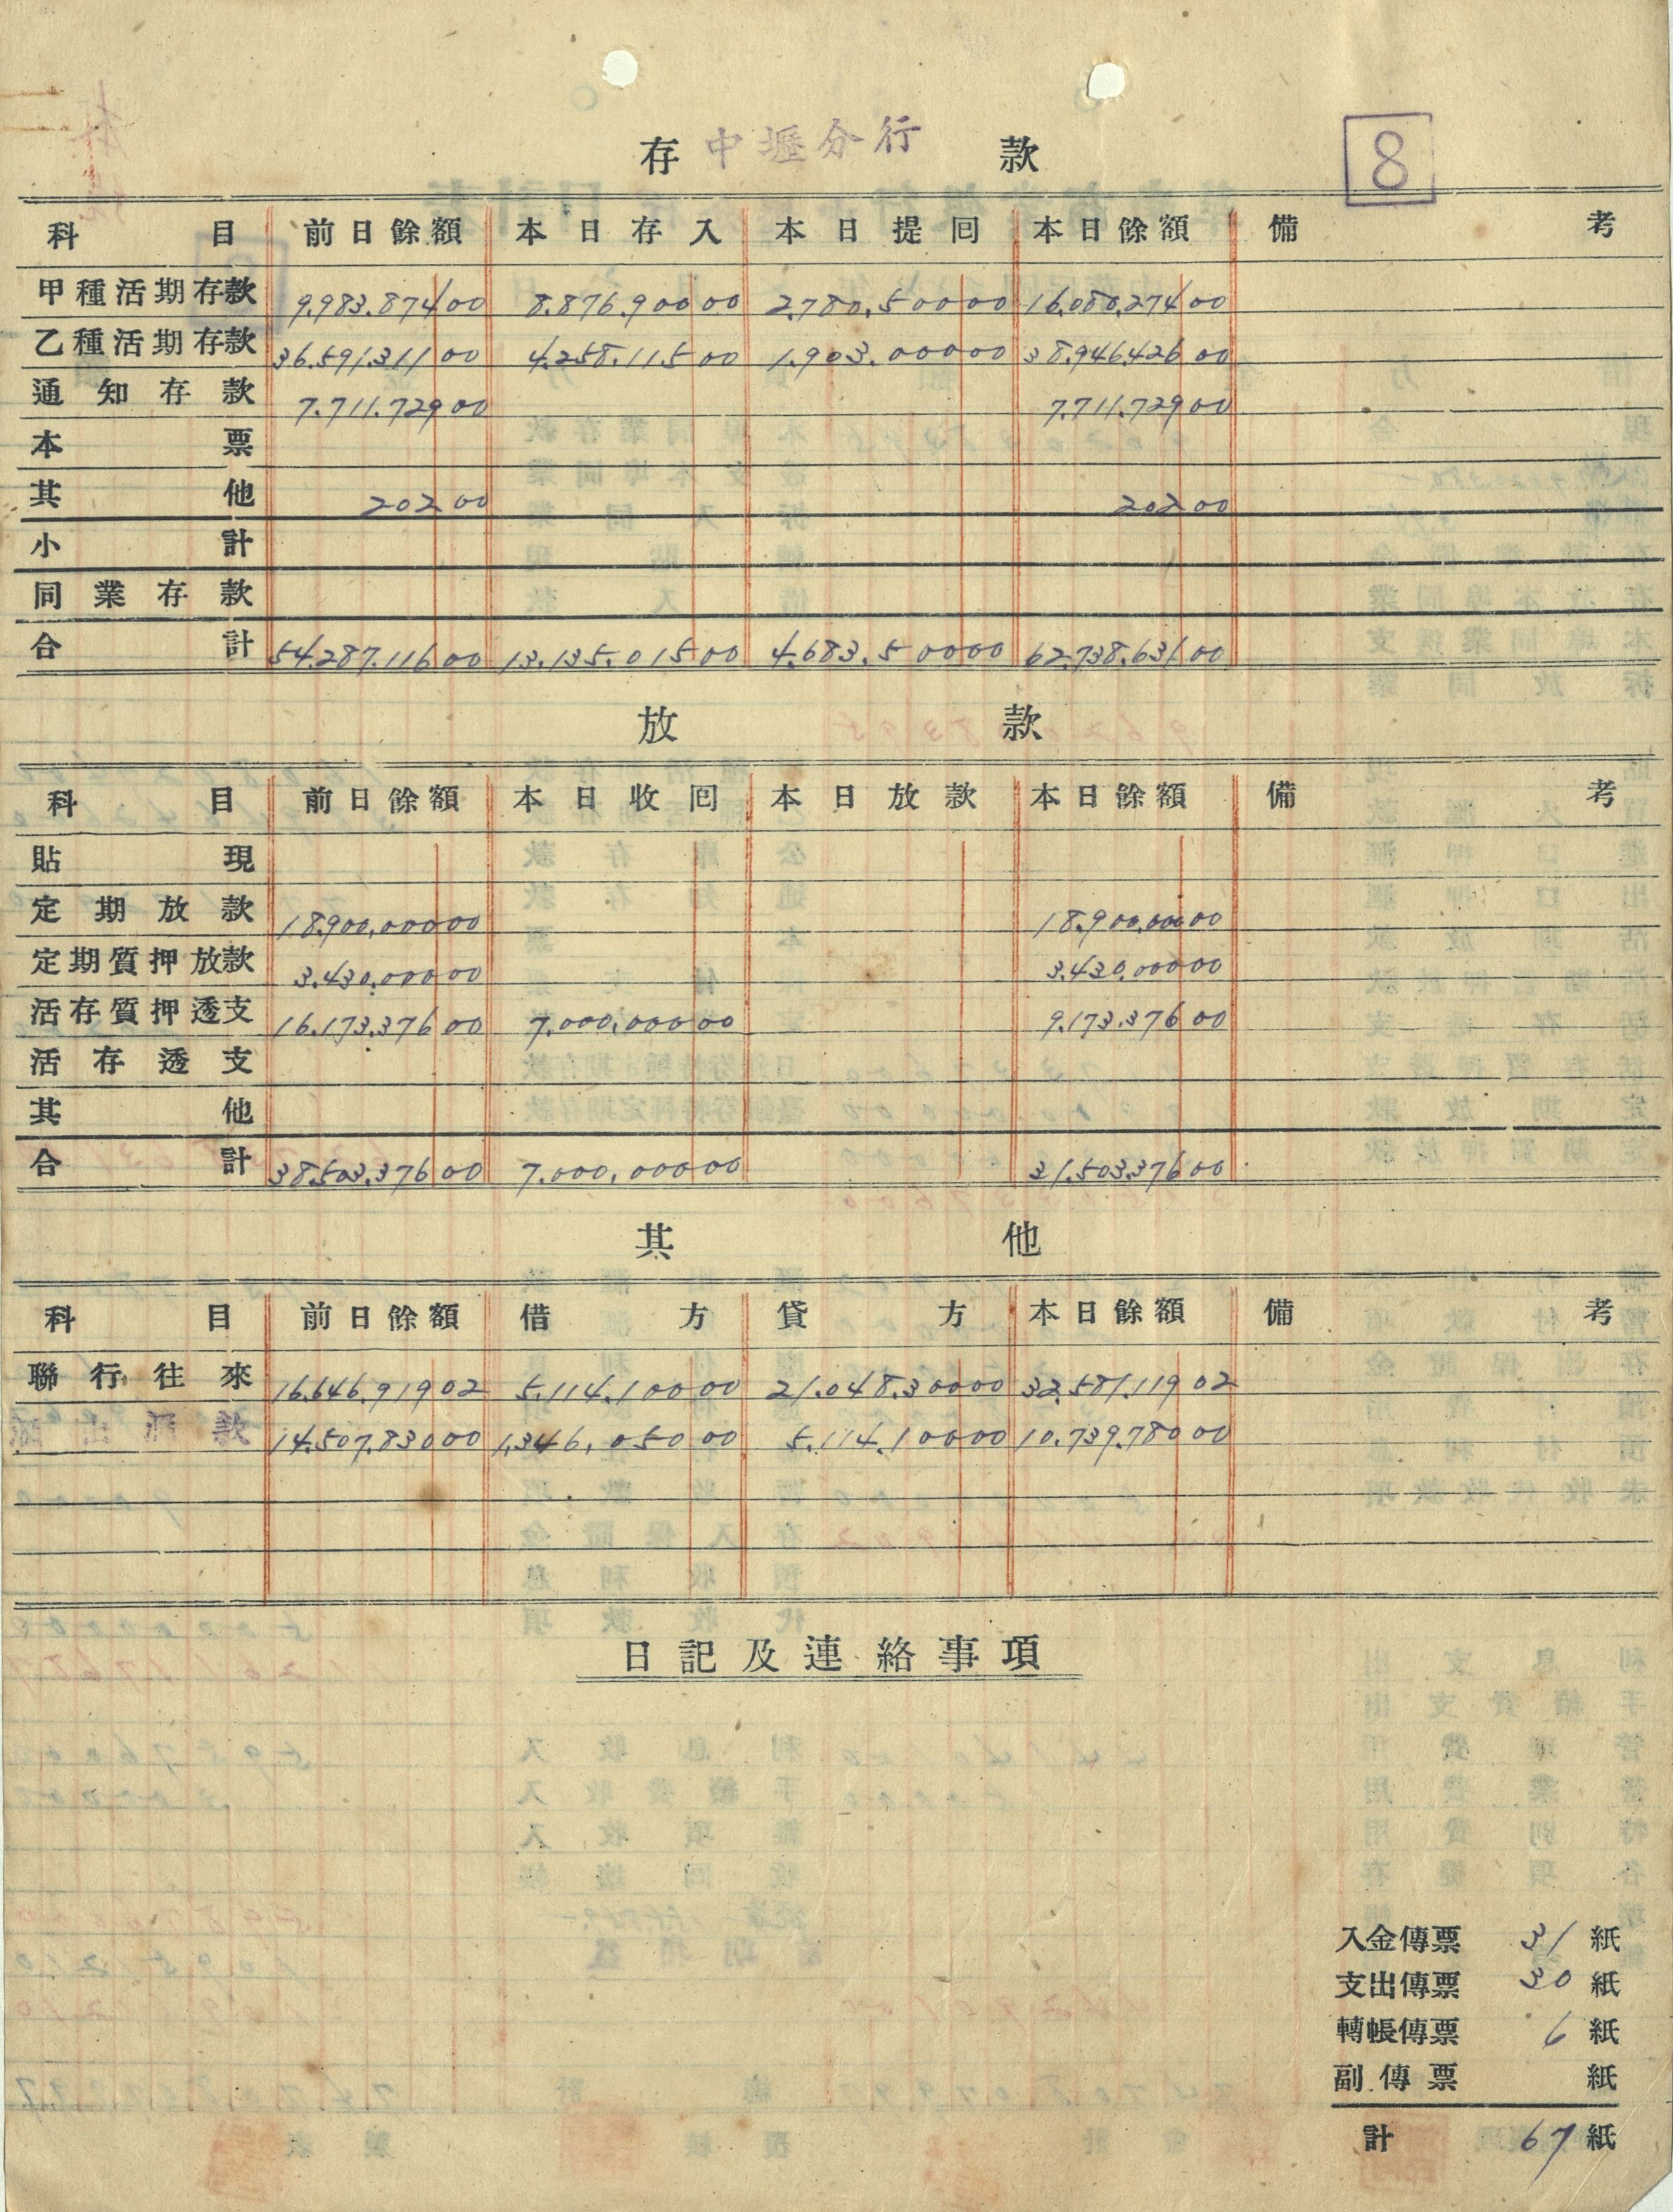 存 中壢分行 款
8
科目 前日餘額 本日存入 本日提囘 本日餘額 備考
甲種活期存款 9,983,874 00 8,876,900 00 2,780,500 00 16,080,274 00
乙種活期存款 36,591,311 00 4,258,115 00 1,903,000 00 38,946,426 00
通知存款 7,711,729 00 7,711,729 00
本票
其他 202 00 202 00
小計
同業存款
合計 54,287,116 00 13,135,015 00 4,683,500 00 62,738,631 00
放款
科目 前日餘額 本日收囘 本日放款 本日餘額 備考
貼現
定期放款 18,900,000 00 18,900,000 00
定期質押放款 3,430,000 00 3,430,000 00
活存質押透支 16,173,376 00 7,000,000 00 9,173,376 00
活存透支
其他
合計 38,503,376 00 7,000,000 00 31,503,376 00
其他
科目 前日餘額 借方 貸方 本日餘額 備考
聯行往來 16,646,919 02 5,114,100 00 21,048,300 00 32,581,119 02
匯出匯款 14,507,830 00 1,346,050 00 5,114,100 00 10,739,780 00
日記及連絡事項
入金傳票 31 紙
支出傳票 30 紙
轉帳傳票 6 紙
副傳票 紙
計 67 紙